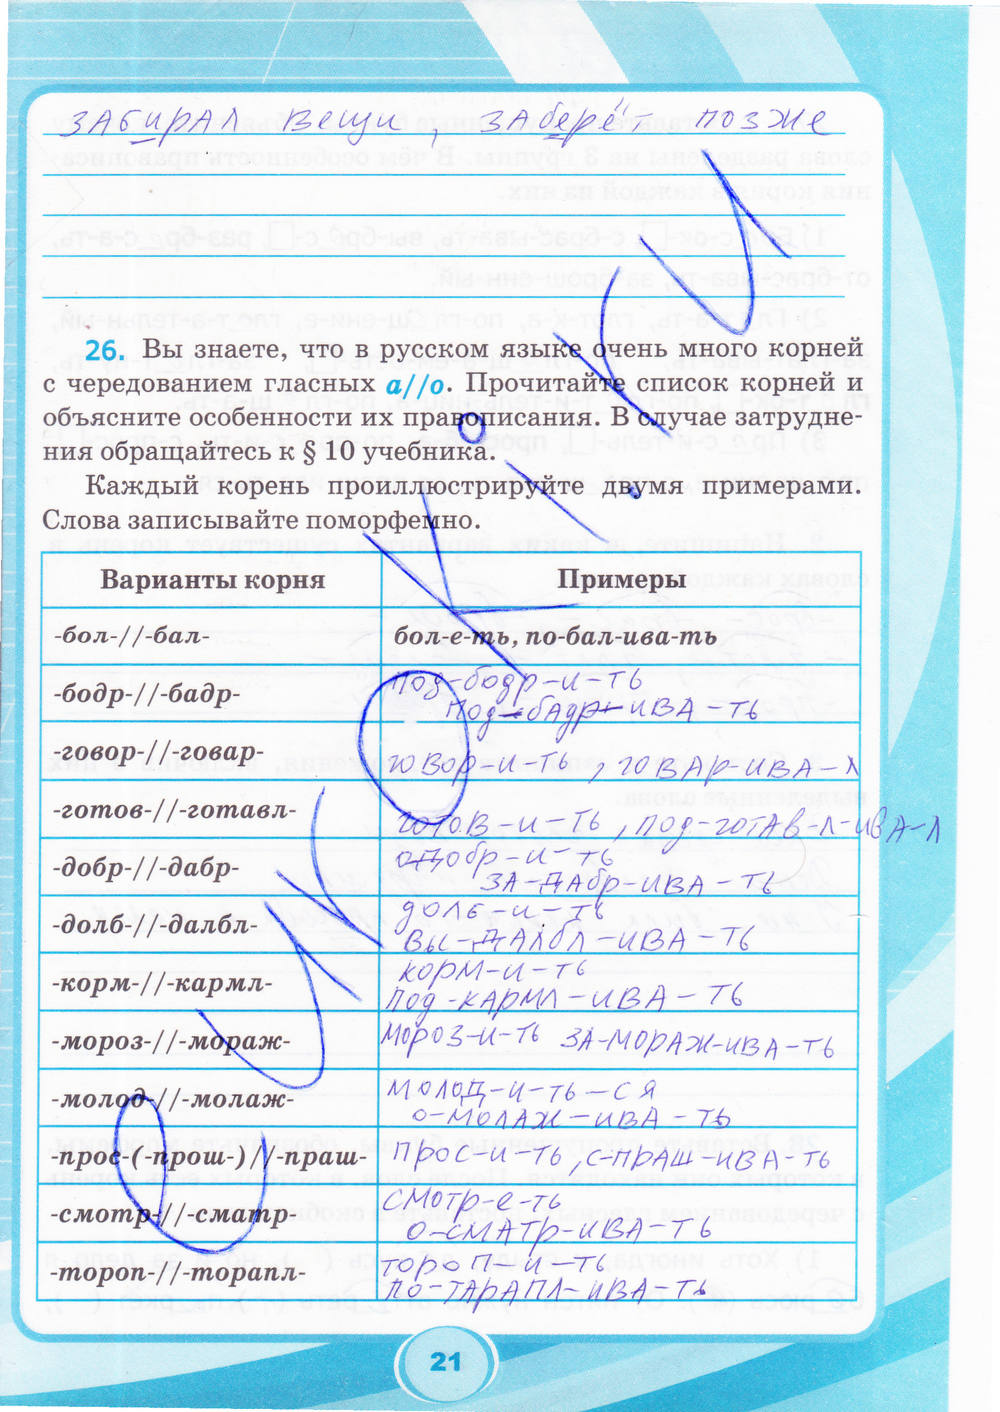 забирал вещи, заберёт позже
26. Вы знаете, что в русском языке очень много корней
с чередованием гласных а//о. Прочитайте список корней и
объясните особенности их правописания. В случае затрудне-
ния обращайтесь к § 10 учебника.
Каждый корень проиллюстрируйте двумя примерами.
Слова записывайте поморфемно.
Варианты корня Примеры
-бол-//-бал- бол-е-ть, по-бал-ива-ть
-бодр-//-бадр- под-бодр-и-ть
под-бадр-ива-ть
-говор-//-говар- говор-и-ть, говар-ива-л
-готов-//-готавл- готов-и-ть, под-готав-л-ива-л
-добр-//-дабр- одобр-и-ть
за-дабр-ива-ть
-долб-//-далбл- долб-и-ть
вы-далбл-ива-ть
-корм-//-кармл- корм-и-ть
под-кармл-ива-ть
-мороз-//-мораж- мороз-и-ть за-мораж-ива-ть
-молод-//-молаж- молод-и-ть-ся
о-молаж-ива-ть
-прос-(-прош-)//-праш- прос-и-ть, с-праш-ива-ть
-смотр-//-сматр- смотр-е-ть
о-сматр-ива-ть
-тороп-//-торапл- тороп-и-ть
по-тарапл-ива-ть
21